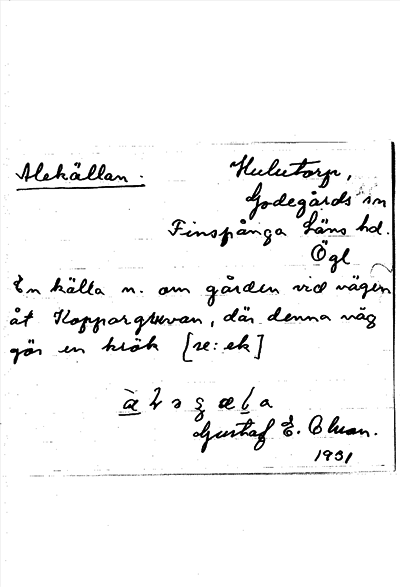 Alekällan.
Hulutorp,
Godegårds sn
Finspånga läns hd.
Ögl
En källa n. om gården vid vägen
åt Koppargruvan, där denna väg
gör en krök [se: ek]
Gustaf E. Olson.
1931